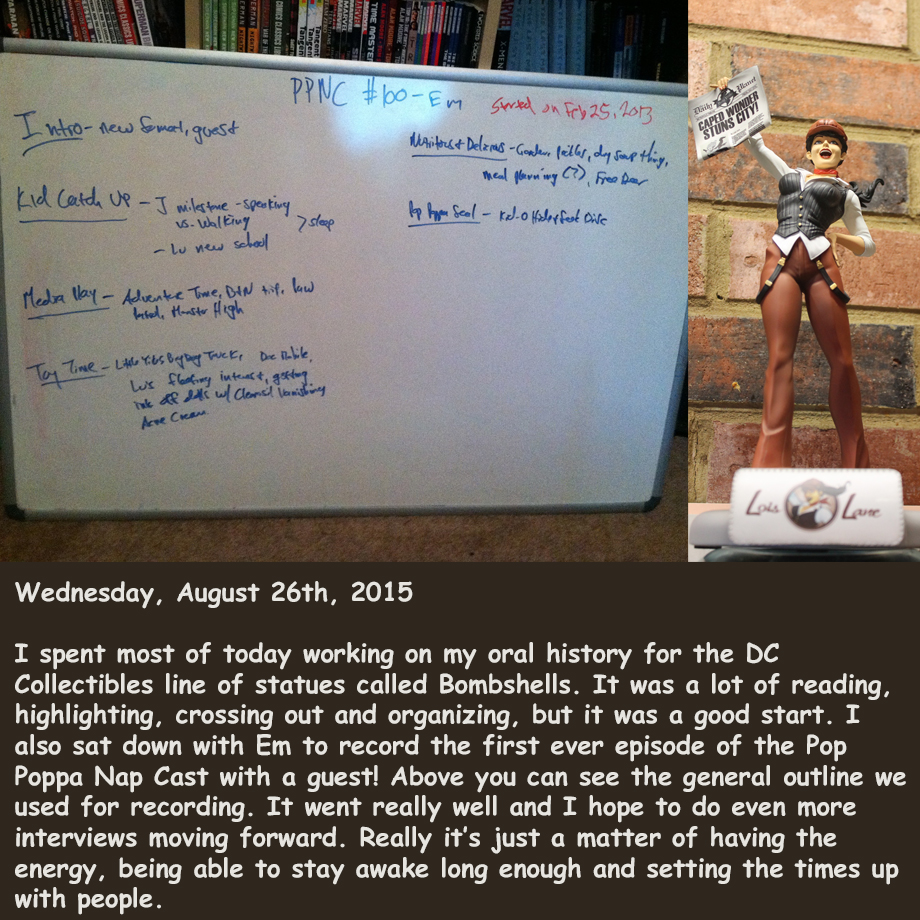 PPNC #100 - Em
Started on Feb 25, 2013
Intro - new format, guest
Kid Catch Up - J milestone - speaking
vs. walking
> sleep
- Lu new school
Media Way - Adventure Time, time, law
Monster High
Toy Time - Little Big Truck,
Lu's floating interest, getting
ink off dolls w/ Clearasil Vanishing
Acne Cream
Nutritious & Delicious - Garden, pickles, dry soup thing,
meal planning (?), Free
Pop Poppa Seal - Kid-O
Daily Planet
CAPED WONDER
STUNS CITY!
Lois Lane
Wednesday, August 26th, 2015
I spent most of today working on my oral history for the DC
Collectibles line of statues called Bombshells. It was a lot of reading,
highlighting, crossing out and organizing, but it was a good start. I
also sat down with Em to record the first ever episode of the Pop
Poppa Nap Cast with a guest! Above you can see the general outline we
used for recording. It went really well and I hope to do even more
interviews moving forward. Really it's just a matter of having the
energy, being able to stay awake long enough and setting the times up
with people.